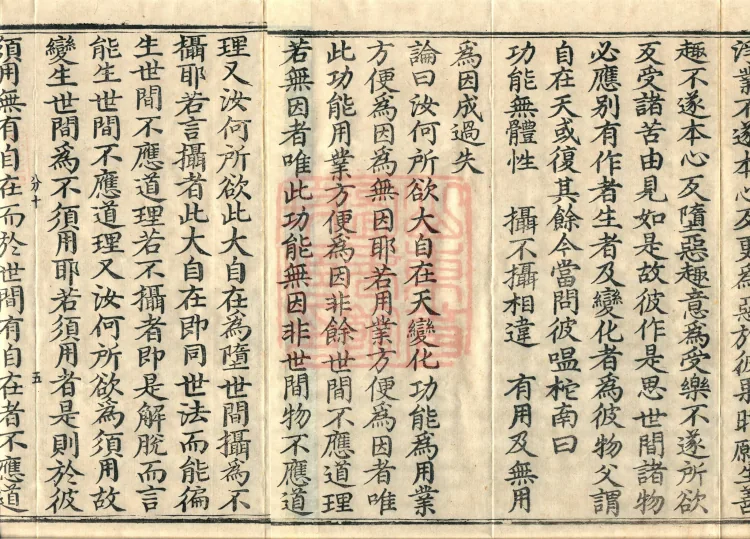 業不遂本心反更爲惡於彼果時願生善
趣不遂本心反墮惡趣意爲受樂不遂所欲
反受諸苦由見如是故彼作是思世間諸物
必應別有作者生者及變化者爲彼物父謂
自在天或復其餘今當問彼嗢柁南曰
功能無體性　攝不攝相違　有用及無用
爲因成過失
論曰汝何所欲大自在天變化功能爲用業
方便爲因爲無因耶若用業方便爲因者唯
此功能用業方便爲因非餘世間不應道理
若無因者唯此功能無因非世間物不應道
理又汝何所欲此大自在爲墮世間攝爲不
攝耶若言攝者此大自在即同世法而能徧
生世間不應道理若不攝者即是解脫而言
能生世間不應道理又汝何所欲爲須用故
變生世間爲不須用耶若須用者是則於彼
分十　五
須用無有自在而於世間有自在者不應道